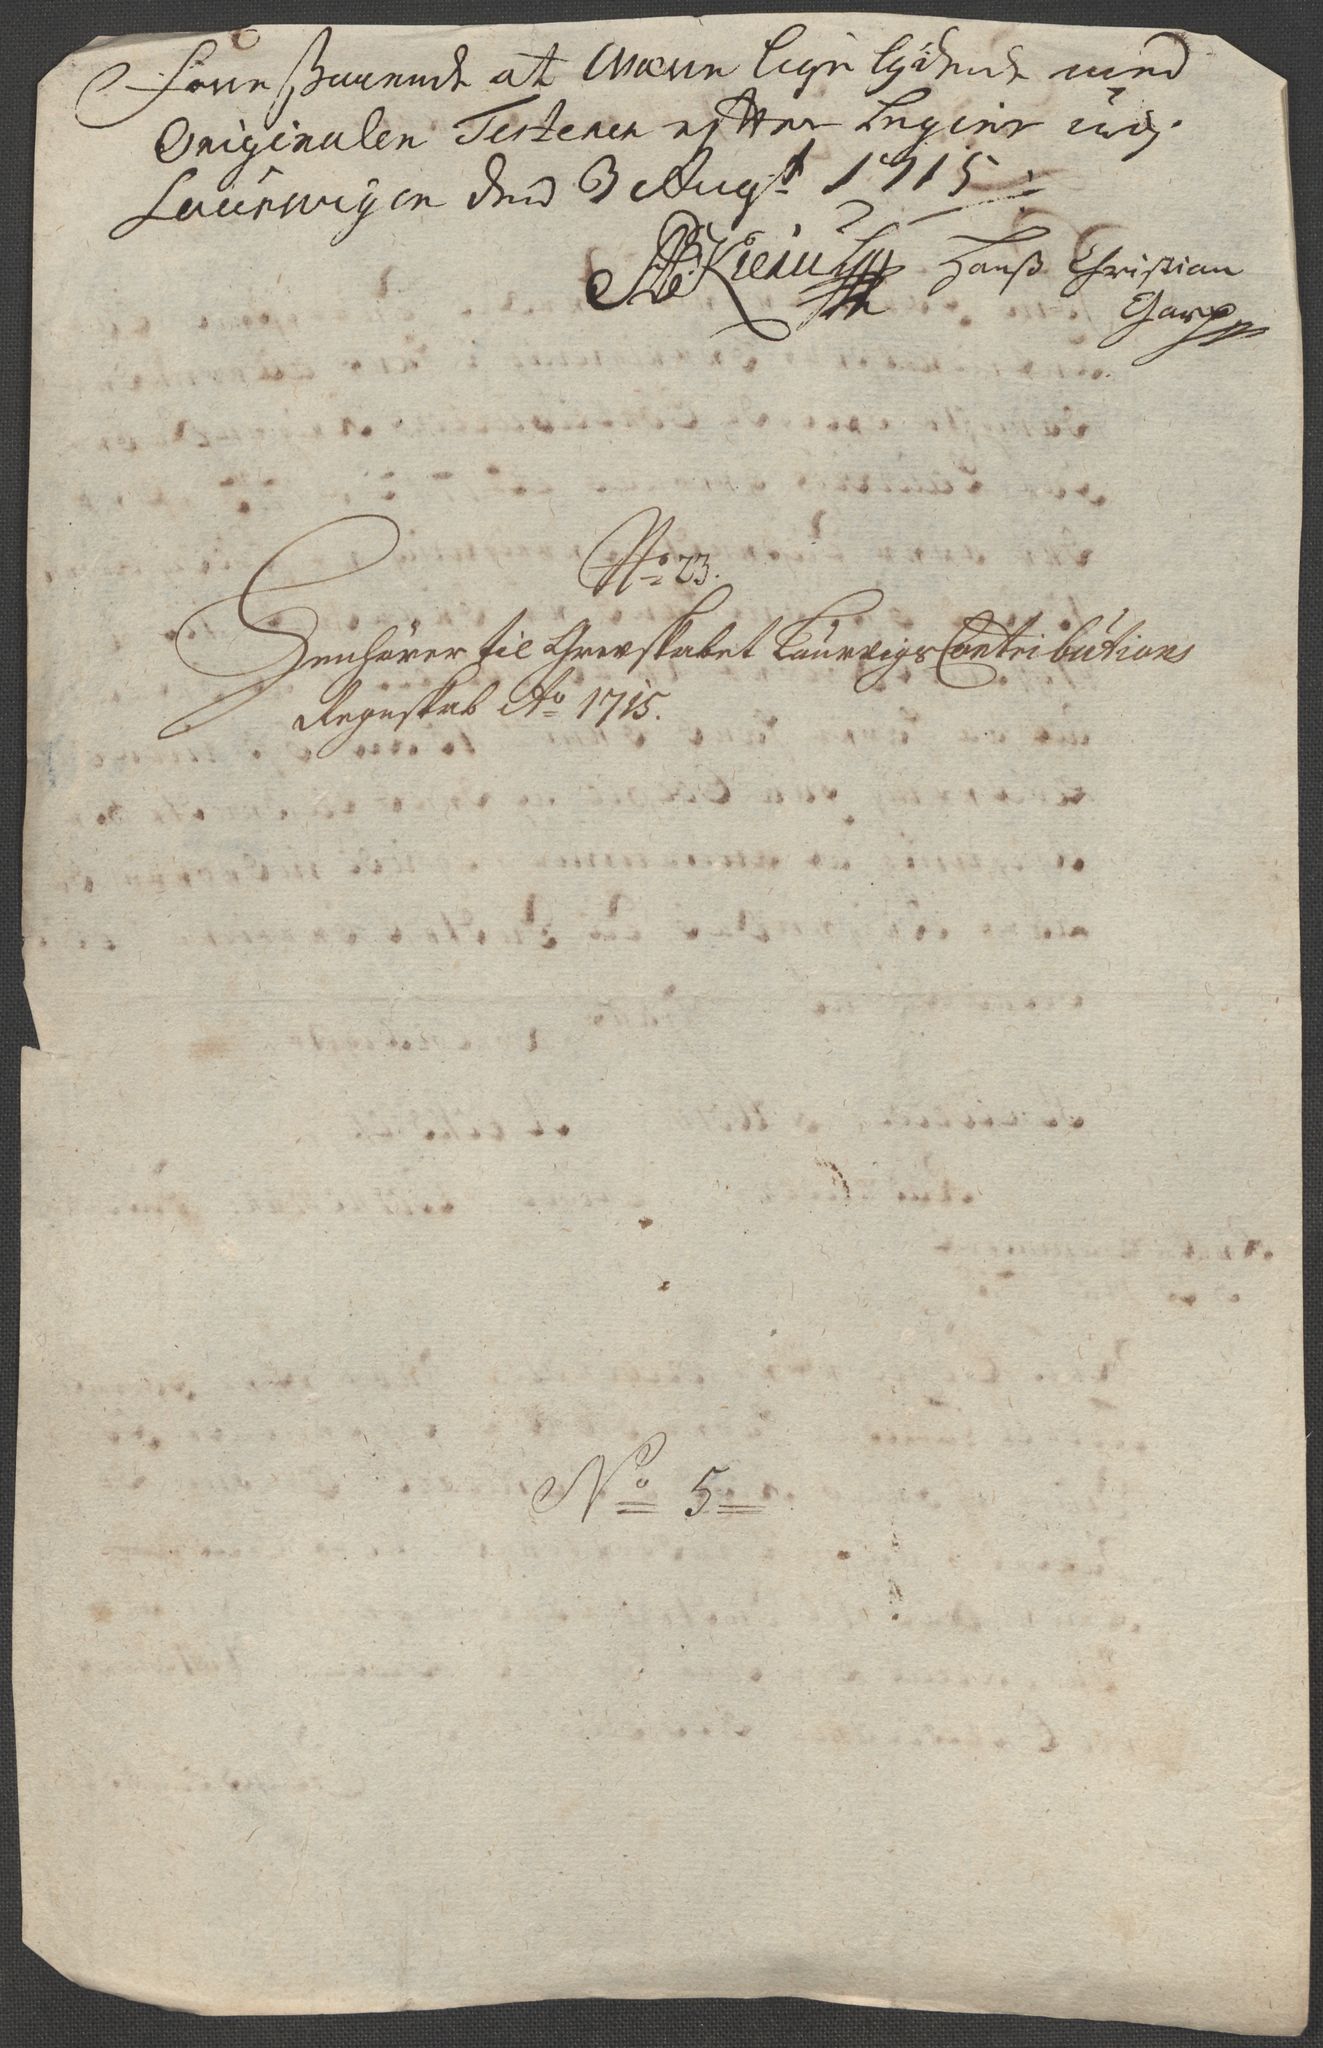 at være lige lydende med
Originalen Testerer efter
Laurwigen dend 3 Augst 1715
Hanß Christian
No 23.
Henhörer til Grevskabet Laurvigs Contributions
Regnskab Ao 1715.
No 5